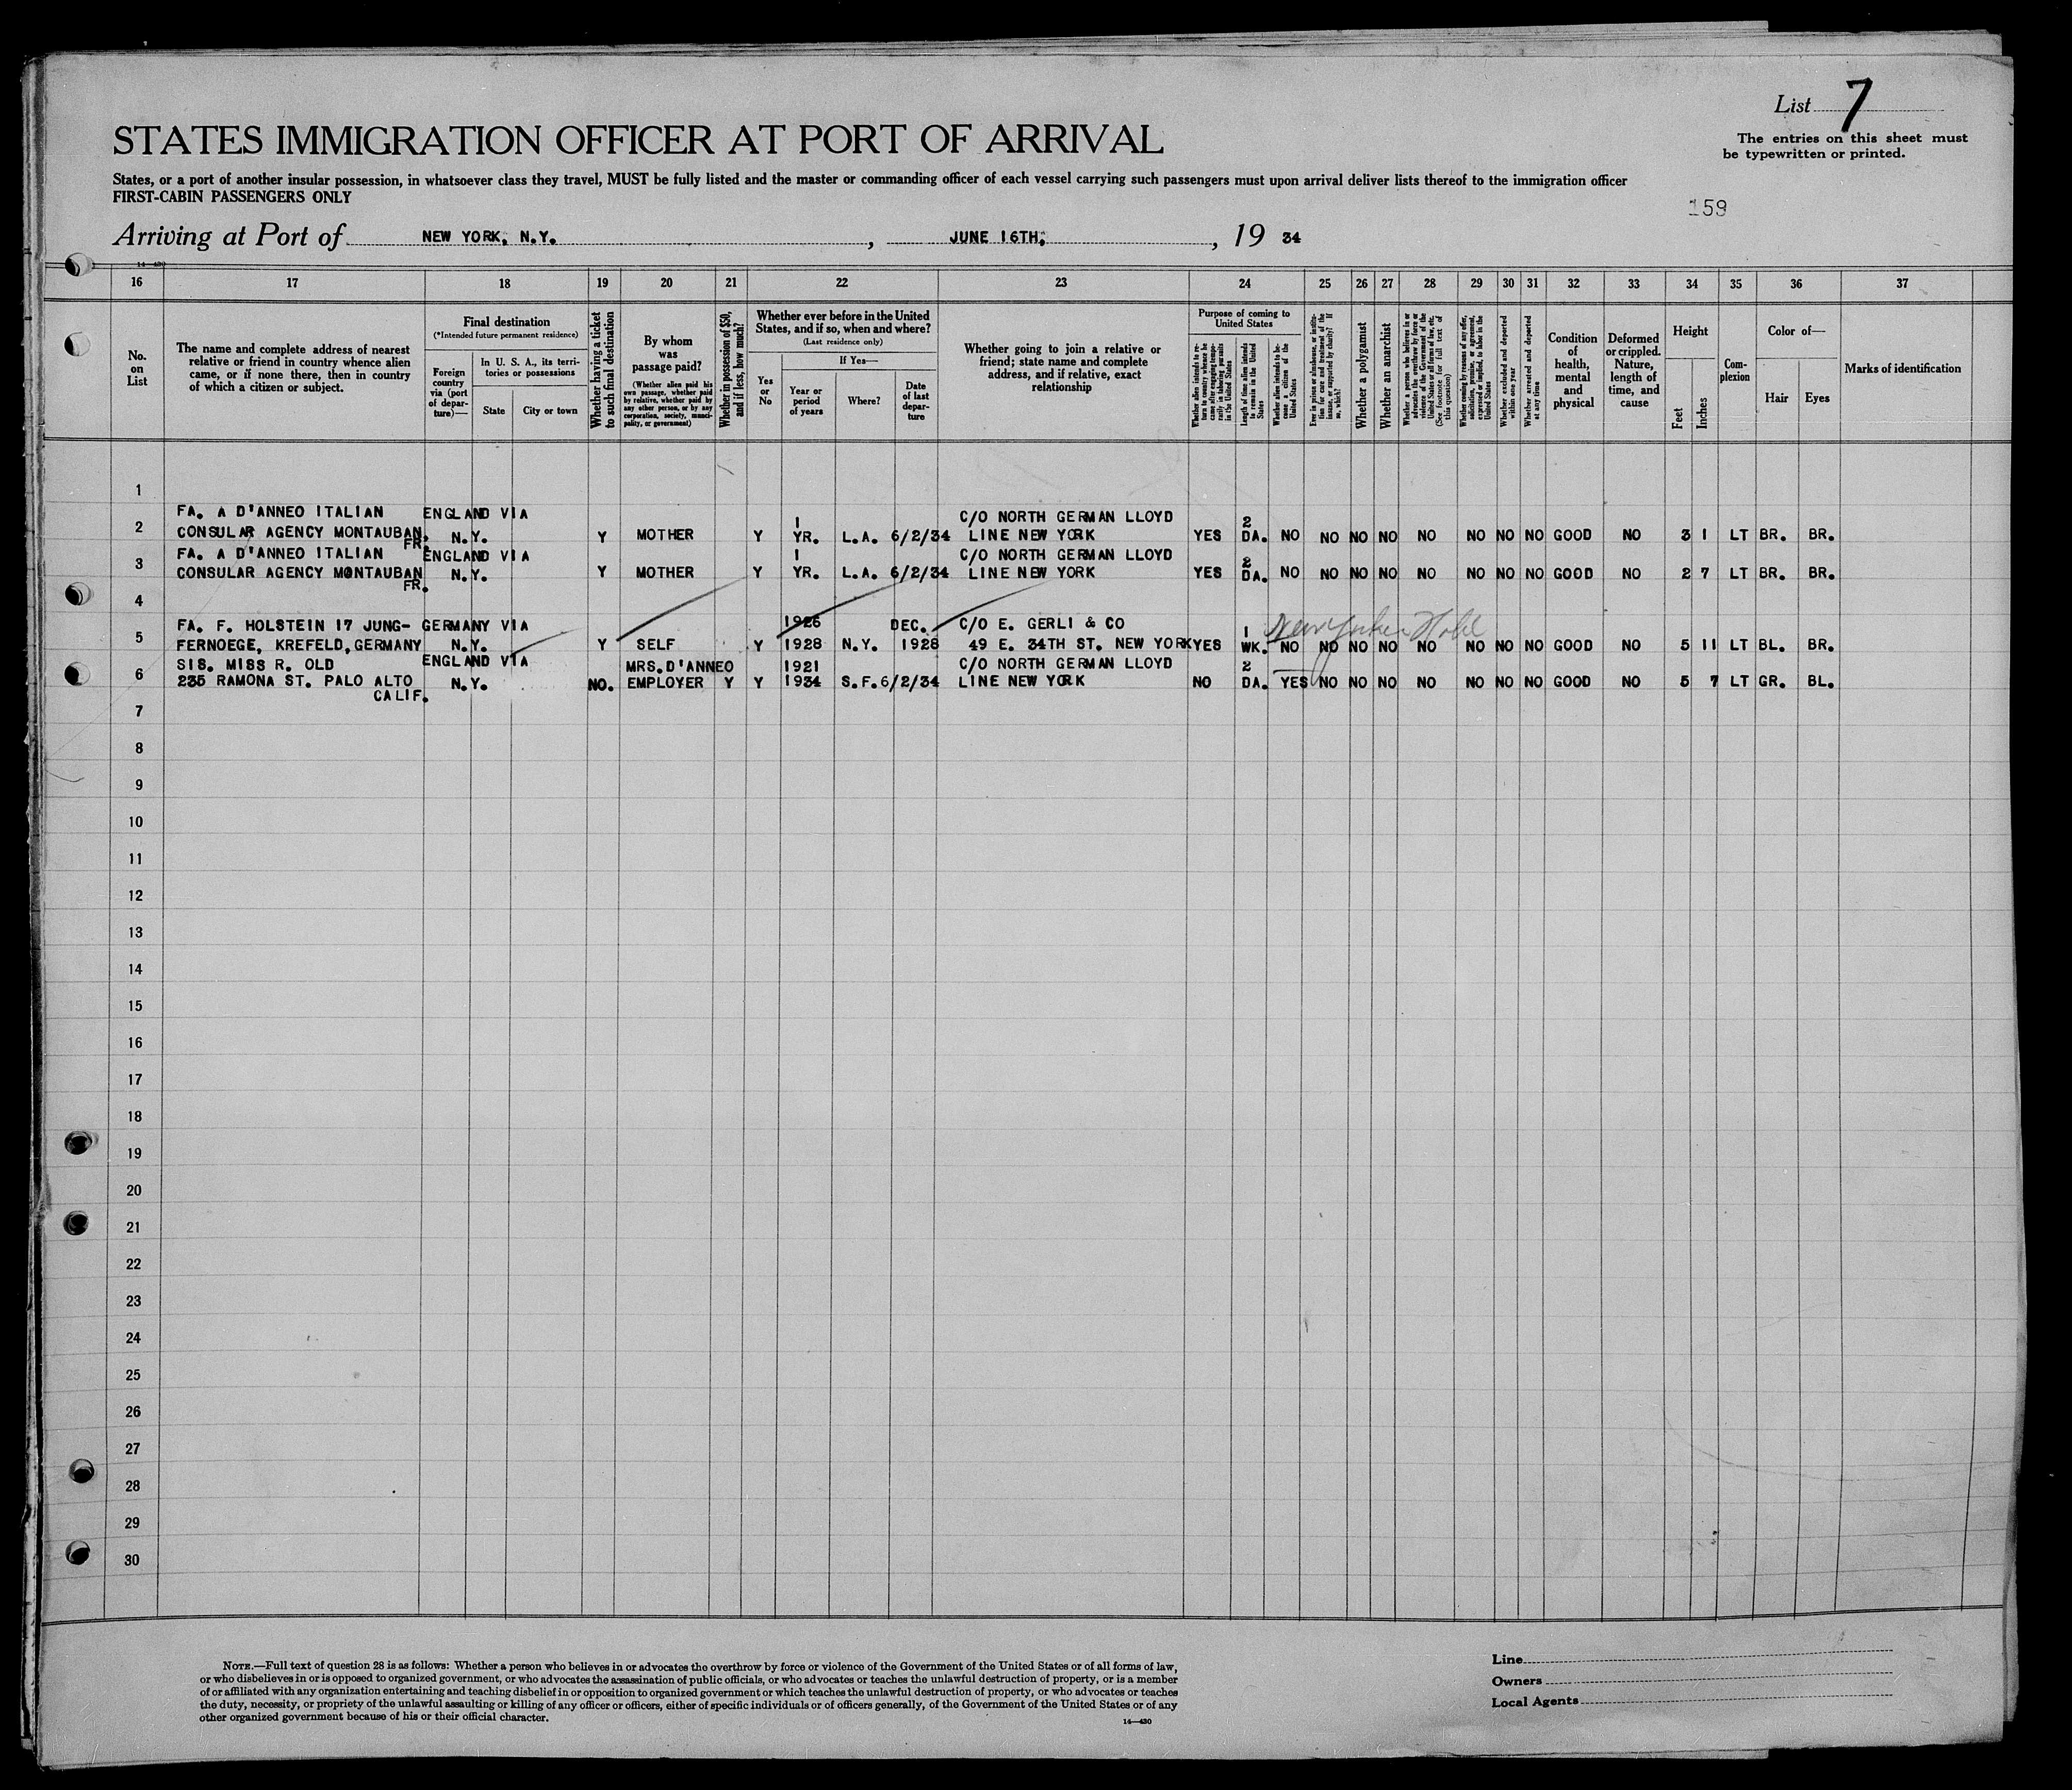 List 7
The entries on this sheet must
be typewritten or printed.
STATES IMMIGRATION OFFICER AT PORT OF ARRIVAL
States, or a port of another insular possession, in whatsoever class they travel, MUST be fully listed and the master or commanding officer of each vessel carrying such passengers must upon arrival deliver lists thereof to the immigration officer
FIRST-CABIN PASSENGERS ONLY
159
Arriving at Port of NEW YORK, N.Y. , JUNE 16TH, , 19 34
14—430
16 17 18 19 20 21 22 23 24 25 26 27 28 29 30 31 32 33 34 35 36 37
No. on List
The name and complete address of nearest
relative or friend in country whence alien
came, or if none there, then in country
of which a citizen or subject.
Final destination
(*Intended future permanent residence)
Foreign country via (port of departure)—
In U. S. A., its territories or possessions
State
City or town
Whether having a ticket to such final destination
By whom was passage paid?
(Whether alien paid his own passage, whether paid by relative, whether paid by any other person, or by any corporation, society, municipality, or government)
Whether in possession of $50, and if less, how much?
Whether ever before in the United States, and if so, when and where?
(Last residence only)
Yes or No
If Yes—
Year or period of years
Where?
Date of last departure
Whether going to join a relative or
friend; state name and complete
address, and if relative, exact
relationship
Purpose of coming to United States
Whether alien intends to return to country whence he came after engaging temporarily in laboring pursuits in the United States
Length of time alien intends to remain in the United States
Whether alien intends to become a citizen of the United States
Ever in prison or almshouse, or institution for care and treatment of the insane, or supported by charity? If so, which?
Whether a polygamist
Whether an anarchist
Whether a person who believes in or advocates the overthrow by force or violence of the Government of the United States or all forms of law, etc. (See footnote for full text of this question)
Whether coming by reasons of any offer, solicitation, promise, or agreement, expressed or implied, to labor in the United States
Whether excluded and deported within one year
Whether arrested and deported at any time
Condition of health, mental and physical
Deformed or crippled. Nature, length of time, and cause
Height
Feet
Inches
Complexion
Color of—
Hair
Eyes
Marks of identification
1
FA. A D'ANNEO ITALIAN ENGLAND VIA 1 C/O NORTH GERMAN LLOYD 2
2 CONSULAR AGENCY MONTAUBAN, N.Y. Y MOTHER Y YR. L.A. 6/2/34 LINE NEW YORK YES DA. NO NO NO NO NO NO NO NO GOOD NO 3 1 LT BR. BR.
FR.
FA. A D'ANNEO ITALIAN ENGLAND VIA 1 C/O NORTH GERMAN LLOYD 2
3 CONSULAR AGENCY MONTAUBAN N.Y. Y MOTHER Y YR. L.A. 6/2/34 LINE NEW YORK YES DA. NO NO NO NO NO NO NO NO GOOD NO 2 7 LT BR. BR.
FR.
4
FA. F. HOLSTEIN 17 JUNG- GERMANY VIA DEC. C/O E. GERLI & CO 1
5 FERNOEGE, KREFELD, GERMANY N.Y. Y SELF Y 1928 N.Y. 1928 49 E. 34TH ST. NEW YORK YES WK. NO NO NO NO NO NO NO NO GOOD NO 5 11 LT BL. BR.
SIS. MISS R. OLD ENGLAND VIA MRS. D'ANNEO 1921 C/O NORTH GERMAN LLOYD 2
6 235 RAMONA ST. PALO ALTO N.Y. NO. EMPLOYER Y Y 1934 S.F. 6/2/34 LINE NEW YORK NO DA. YES NO NO NO NO NO NO NO GOOD NO 5 7 LT GR. BL.
CALIF.
7
8
9
10
11
12
13
14
15
16
17
18
19
20
21
22
23
24
25
26
27
28
29
30
NOTE.—Full text of question 28 is as follows: Whether a person who believes in or advocates the overthrow by force or violence of the Government of the United States or of all forms of law,
or who disbelieves in or is opposed to organized government, or who advocates the assassination of public officials, or who advocates or teaches the unlawful destruction of property, or is a member
of or affiliated with any organization entertaining and teaching disbelief in or opposition to organized government or which teaches the unlawful destruction of property, or who advocates or teaches
the duty, necessity, or propriety of the unlawful assaulting or killing of any officer or officers, either of specific individuals or of officers generally, of the Government of the United States or of any
other organized government because of his or their official character.
14—430
Line
Owners
Local Agents